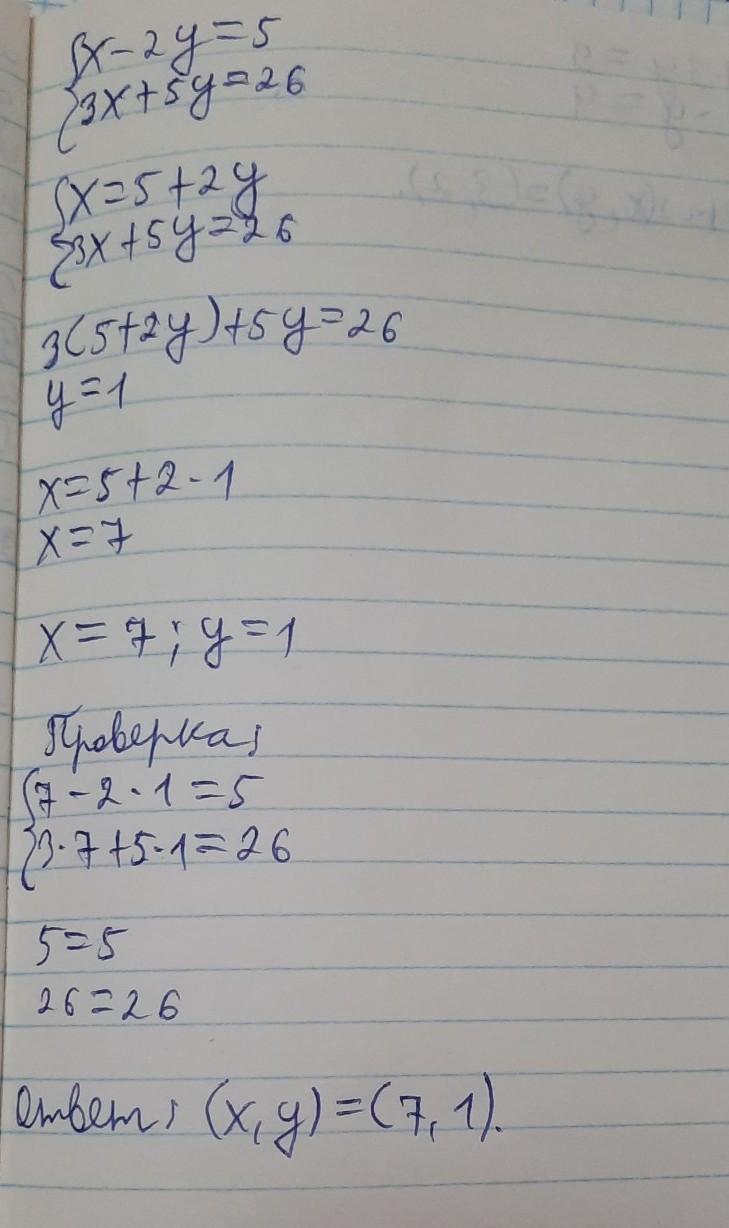 {x-2y=5
{3x+5y=26
{x=5+2y
{3x+5y=26
3(5+2y)+5y=26
y=1
x=5+2·1
x=7
x=7; y=1
Проверка:
{7-2·1=5
{3·7+5·1=26
5=5
26=26
Ответ: (x,y)=(7,1).